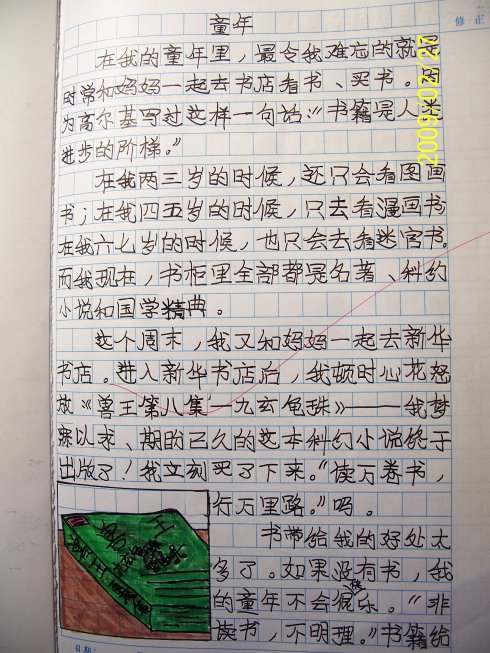 童年
在我的童年里，最令我难忘的就是
时常和妈妈一起去书店看书、买书。因
为高尔基写过这样一句话：“书籍是人类
进步的阶梯。”
在我两三岁的时候，还只会看图画
书；在我四五岁的时候，只去看漫画书
在我六七岁的时候，也只会去看迷宫书。
而我现在，书柜里全部都是名著、科幻
小说和国学精典。
这个周末，我又和妈妈一起去新华
书店。进入新华书店后，我顿时心花怒
放《兽王第八集——九玄龟珠》——我梦
寐以求、期盼已久的这本科幻小说终于
出版了！我立刻买了下来。“读万卷书，
行万里路。”吗。
书带给我的好处太
多了。如果没有书，我
的童年不会快乐。“非
读书，不明理。”书籍给
修正
日期